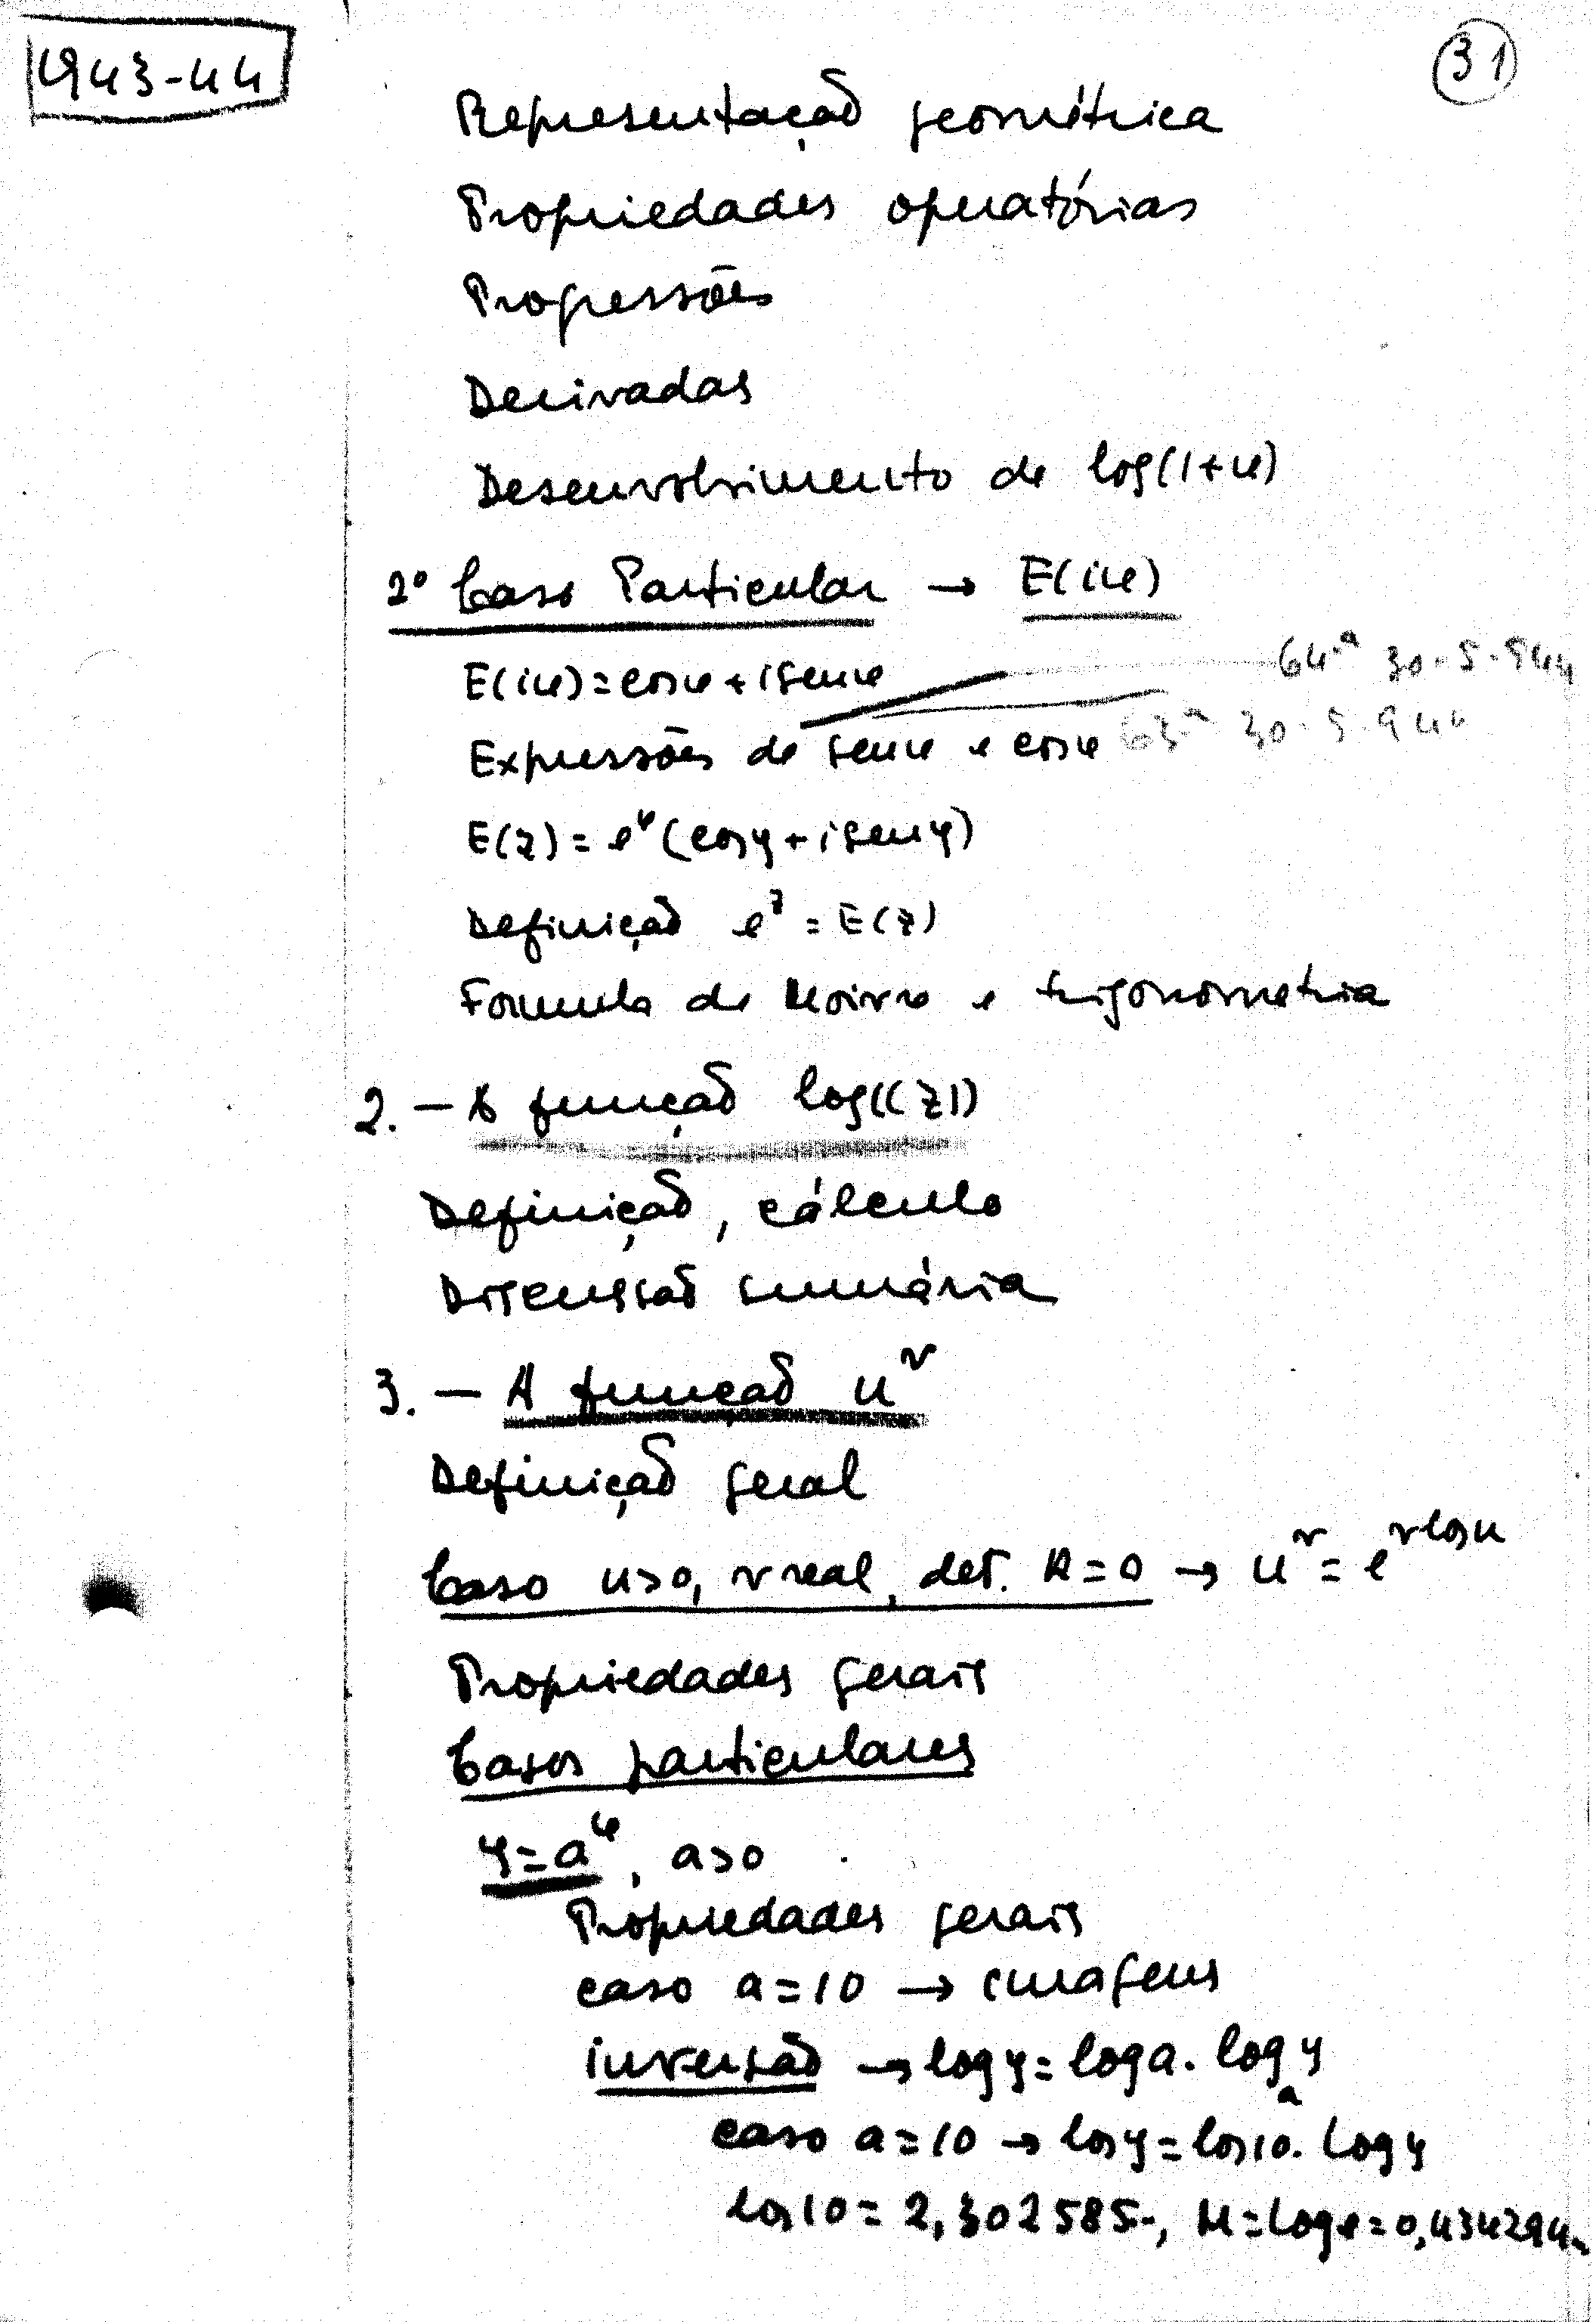 1943-44
31
Representação geométrica
Propriedades operatórias
Progressões
Derivadas
Desenvolvimento de log(1+x)
2º Caso Particular → E(ix)
E(ix)=cosx+isenx 64.ª 30-5-944
Expressões de senx e cosx 63.ª 30-5-944
E(z)=eˣ(cosy+iseny)
Definição eᶻ=E(z)
Formula de Moivre e trigonometria
2.- A função log((z))
Definição, cálculo
Discussão sumária
3.- A função uᵛ
Definição geral
Caso u>0, v real, det. K=0 → uᵛ=e^{vlogu}
Propriedades gerais
Casos particulares
y=aˣ, a>0
Propriedades gerais
caso a=10 → imagens
inversão → log y=log a. log_a y
caso a=10 → log y=log 10. Log y
log10=2,302585.., M=Log e=0,434294..